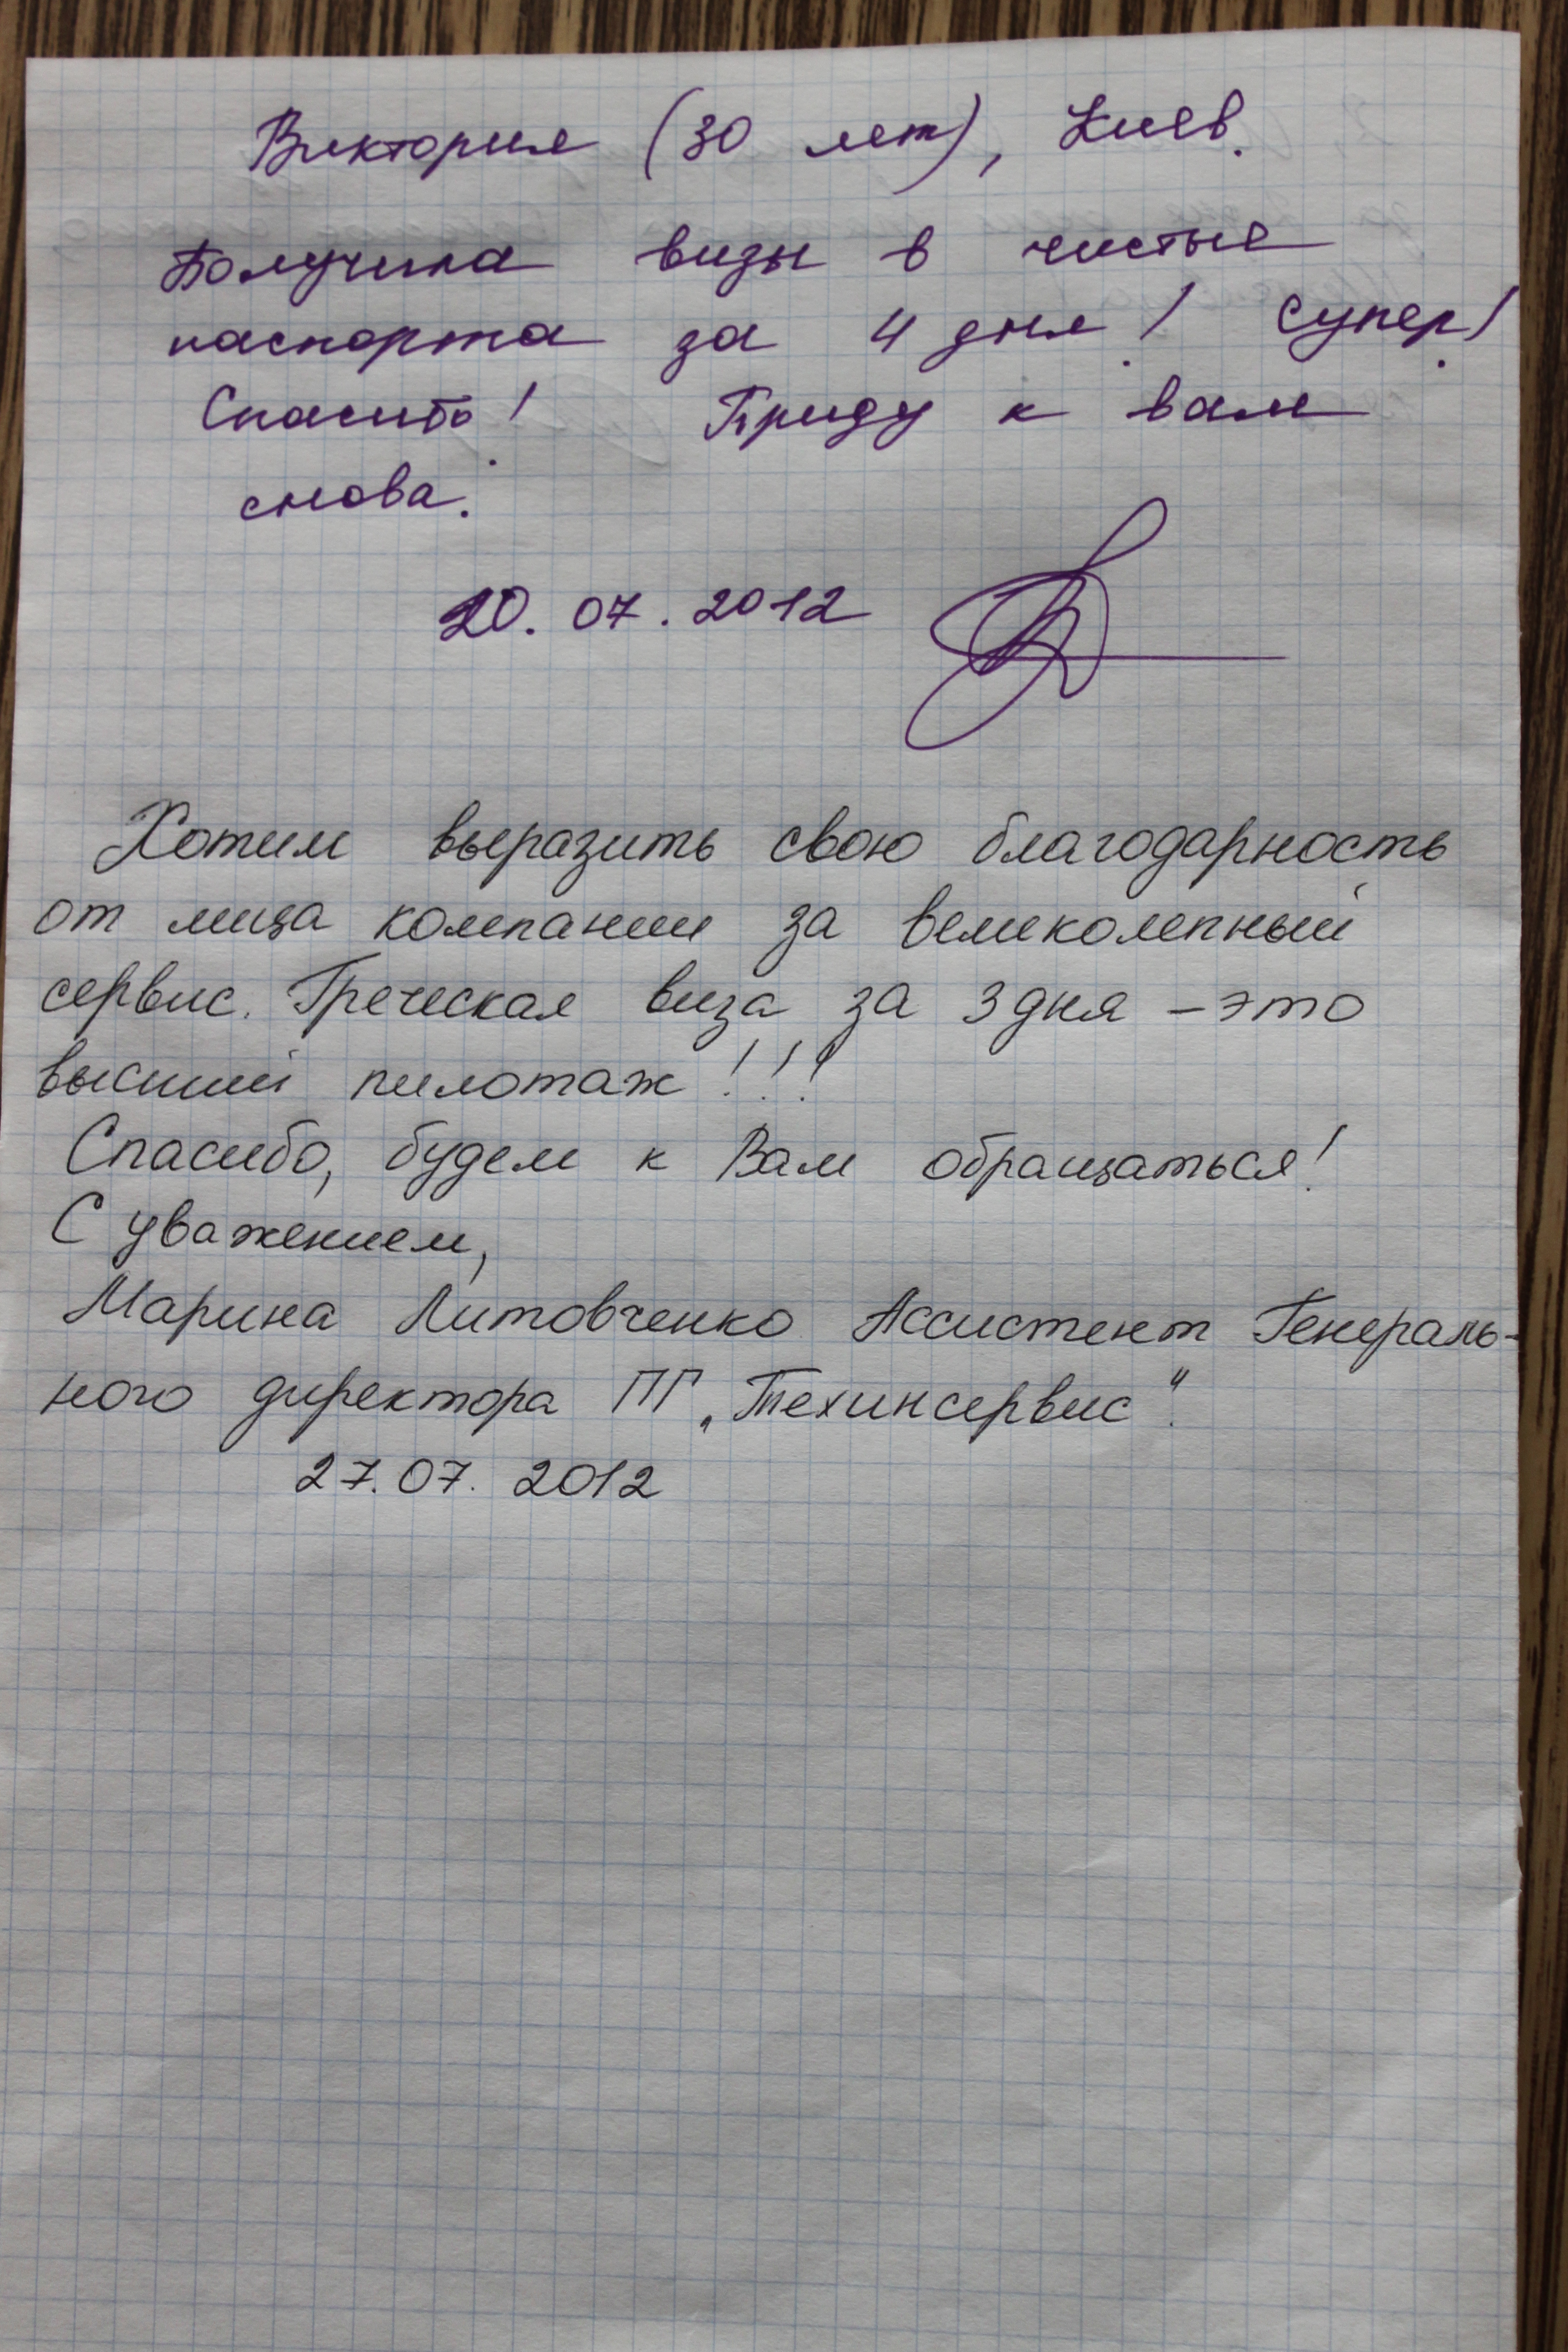 Виктория (30 лет), Киев.
Получила визы в чистые
паспорта за 4 дня! Супер!
Спасибо! Приду к вам
снова.
20.07.2012
Хотим выразить свою благодарность
от лица компании за великолепный
сервис. Греческая виза за 3 дня – это
высший пилотаж!!!
Спасибо, будем к Вам обращаться!
С уважением,
Марина Литовченко Ассистент Генераль-
ного директора ПГ „Техинсервис".
27.07.2012